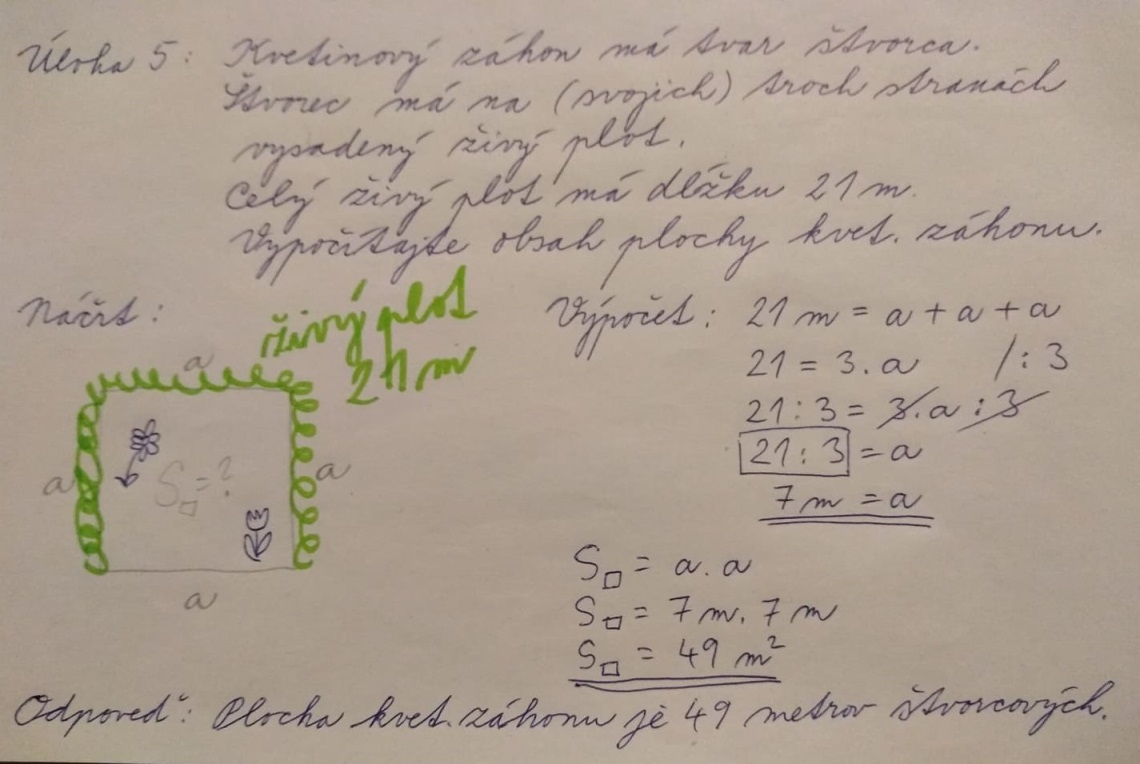 Úloha 5: Kvetinový záhon má tvar štvorca.
Štvorec má na (svojich) troch stranách
vysadený živý plot.
Celý živý plot má dĺžku 21 m.
Vypočítajte obsah plochy kvet. záhonu.
Náčrt:
živý plot
21 m
a
a
S□ = ?
a
a
Výpočet: 21 m = a + a + a
21 = 3 . a /: 3
21 : 3 = 3 . a : 3
21 : 3 = a
7 m = a
S□ = a . a
S□ = 7 m . 7 m
S□ = 49 m²
Odpoveď: Plocha kvet. záhonu je 49 metrov štvorcových.